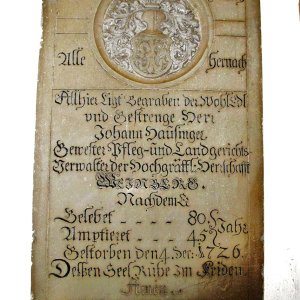 Alle hernach
Allhier Ligt Begraben der Wohl Edl
und Gestrenge Herr
Johann Hausinger
Gewester Pfleg-und Landgerichts
Verwalter der Hochgräffl: Herrschafft
WEINBERG.
Nachdem Er
Gelebet 80. Jahr
Amptieret 45
Gestorben den 4. Der: 1726.
Dessen Seel Ruhe Im Friden
Amen